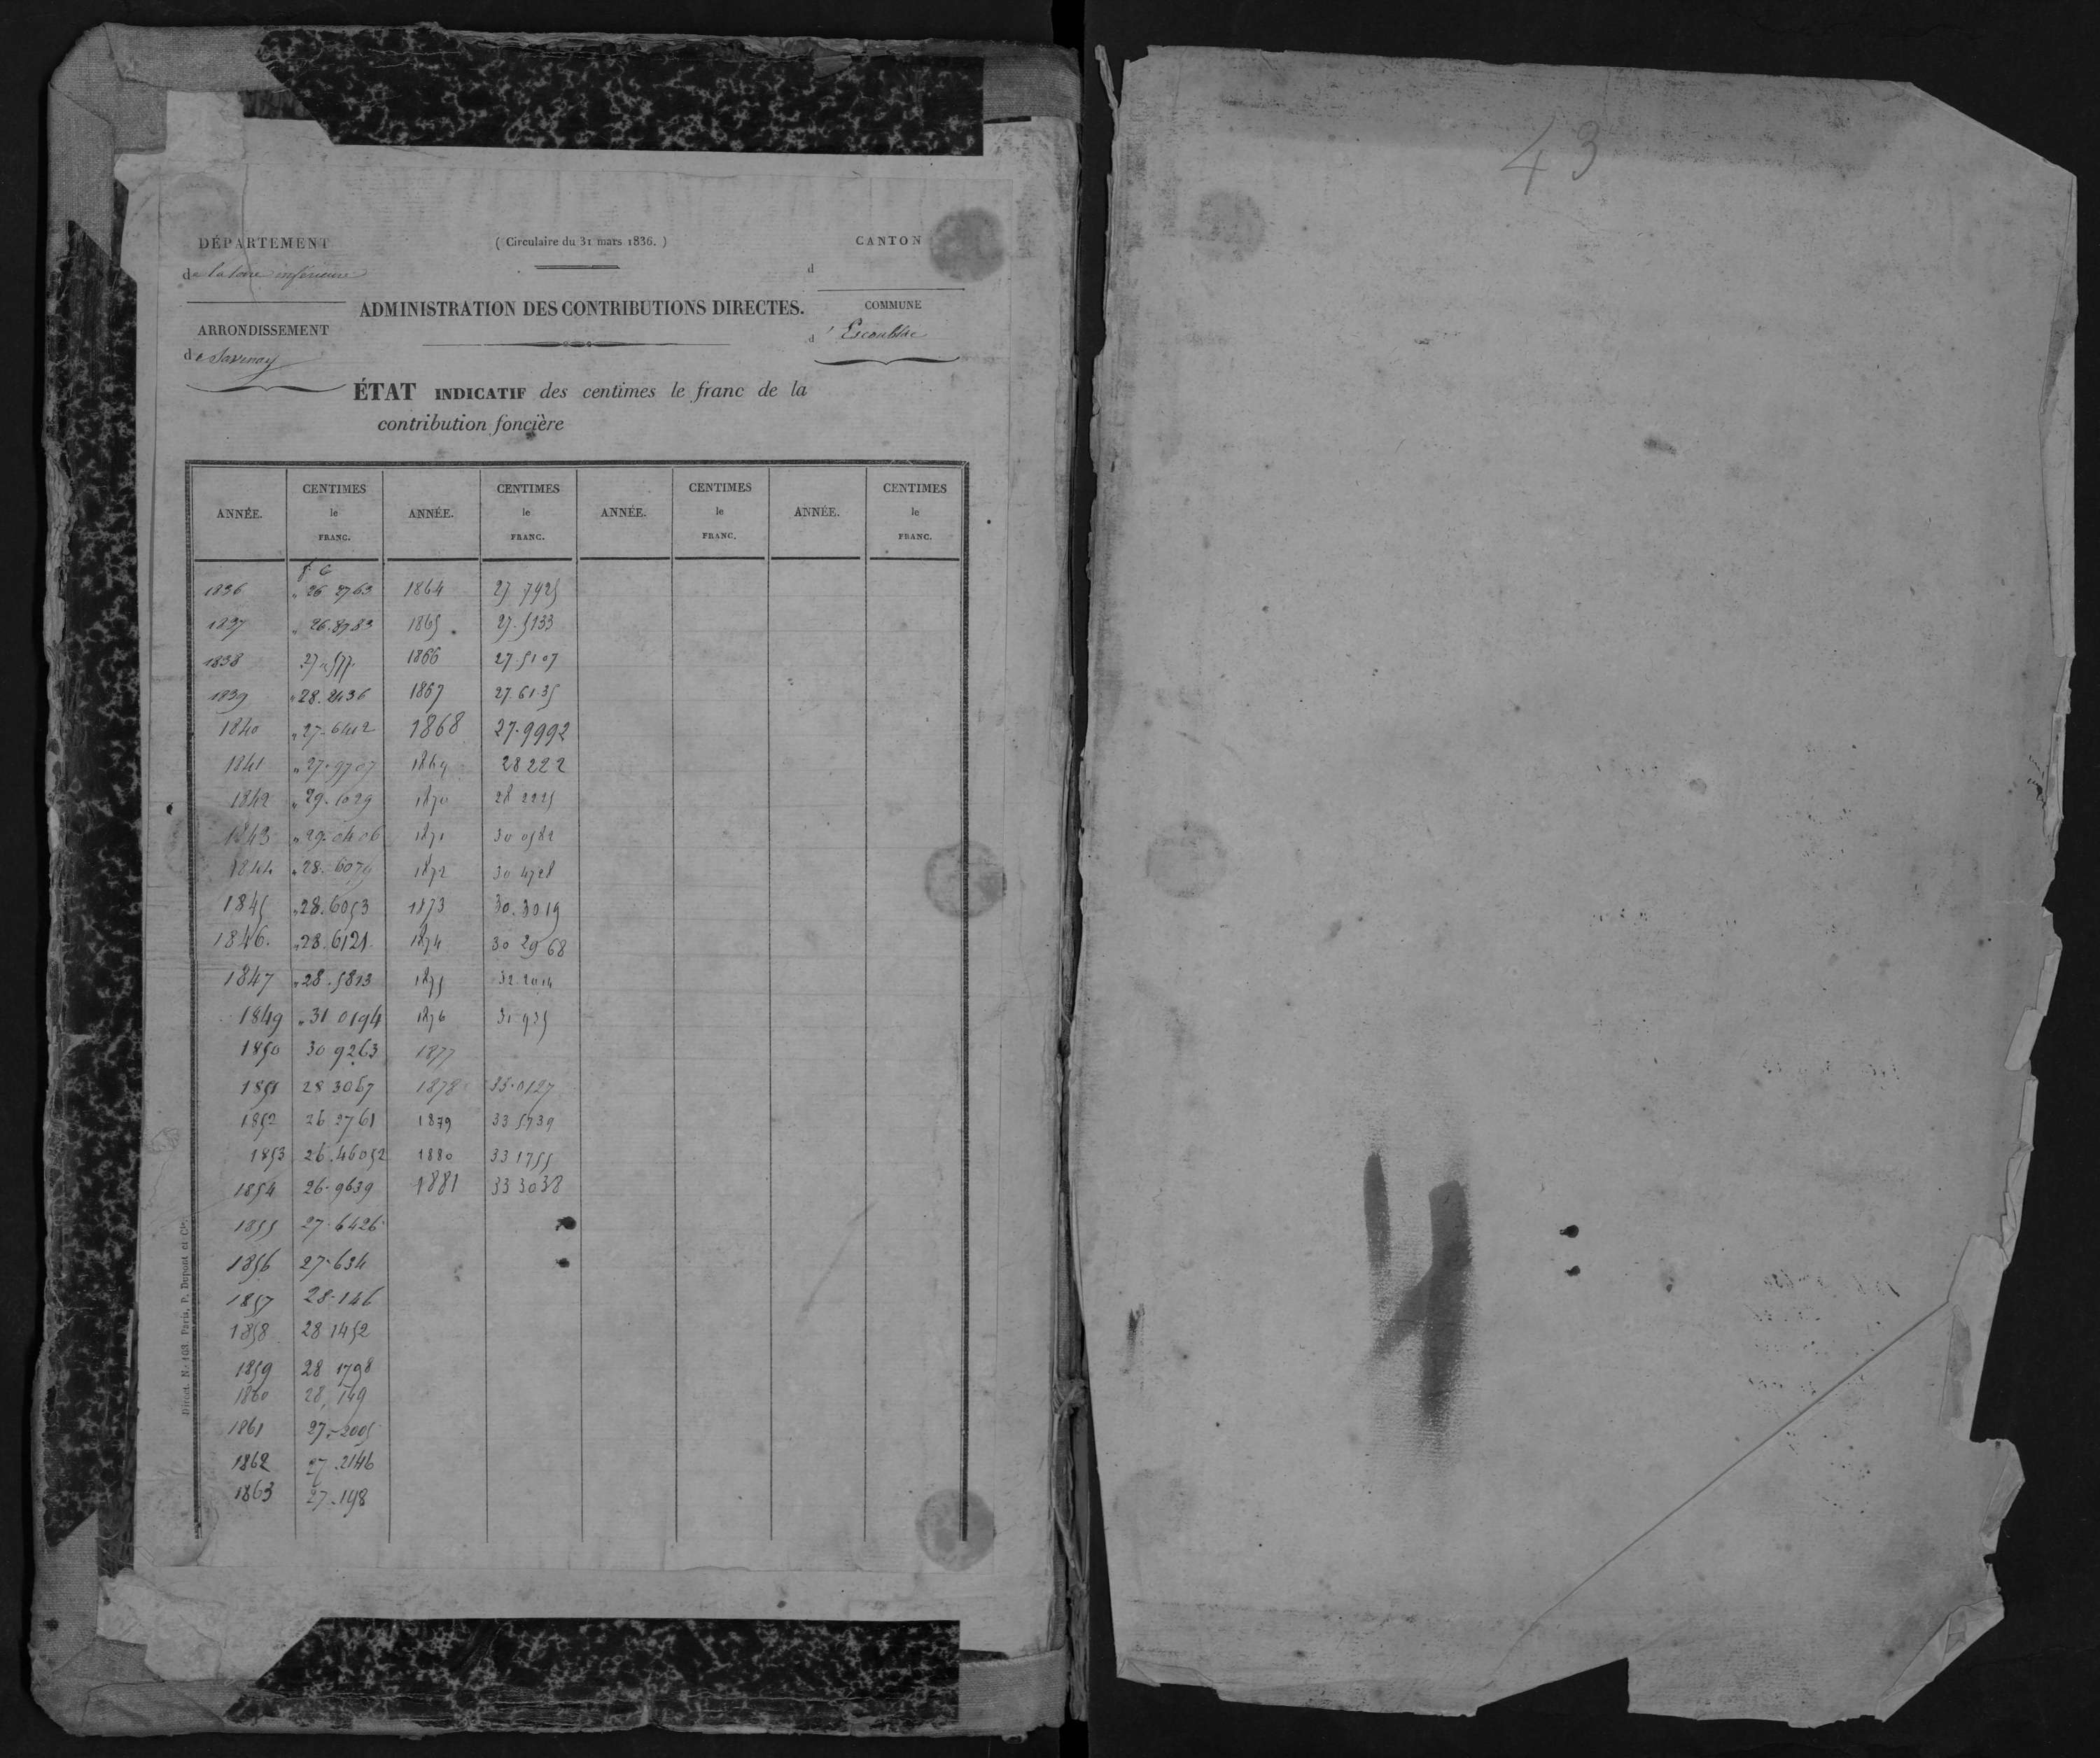 DÉPARTEMENT
de la loire inférieure
ARRONDISSEMENT
de Savenay
( Circulaire du 31 mars 1836. )
ADMINISTRATION DES CONTRIBUTIONS DIRECTES.
CANTON
d
COMMUNE
d'Escoublac
ÉTAT INDICATIF des centimes le franc de la
contribution foncière
ANNÉE. CENTIMES le FRANC. ANNÉE. CENTIMES le FRANC. ANNÉE. CENTIMES le FRANC. ANNÉE. CENTIMES le FRANC.
f. c
1836 " 26 2763 1864 27 7425
1837 " 26.8783 1865 27.5133
1838 1866 27 5107
1839 " 28.2436 1867 27.6135
1840 " 27.6412 1868 27.9992
1841 " 27.9707 1869 28 222
1842 " 29.1029 1870 28 2225
1843 " 29.0406 1871 30 0582
1844 " 28.6079 1872 30 4728
1845 " 28.6053 1873 30.3019
1846. " 28.6121 1874 30 2968
1847 " 28.5893 1875 32.2014
1849 " 31 0194 1876 31 935
1850 30 9263 1877
1851 28 3067 1878 33.0127
1852 26 2761 1879 33 5739
1853 26.46052 1880 33 1755
1854 26.9639 1881 33 3038
1855 27.6426
1856 27.634
1857 28.146
1858 28 1452
1859 28 1798
1860 28, 149
1861 27.2005
1862 27.2146
1863 27.198
Direct. N.° 103. Paris, P. Dupont et Cie.
43